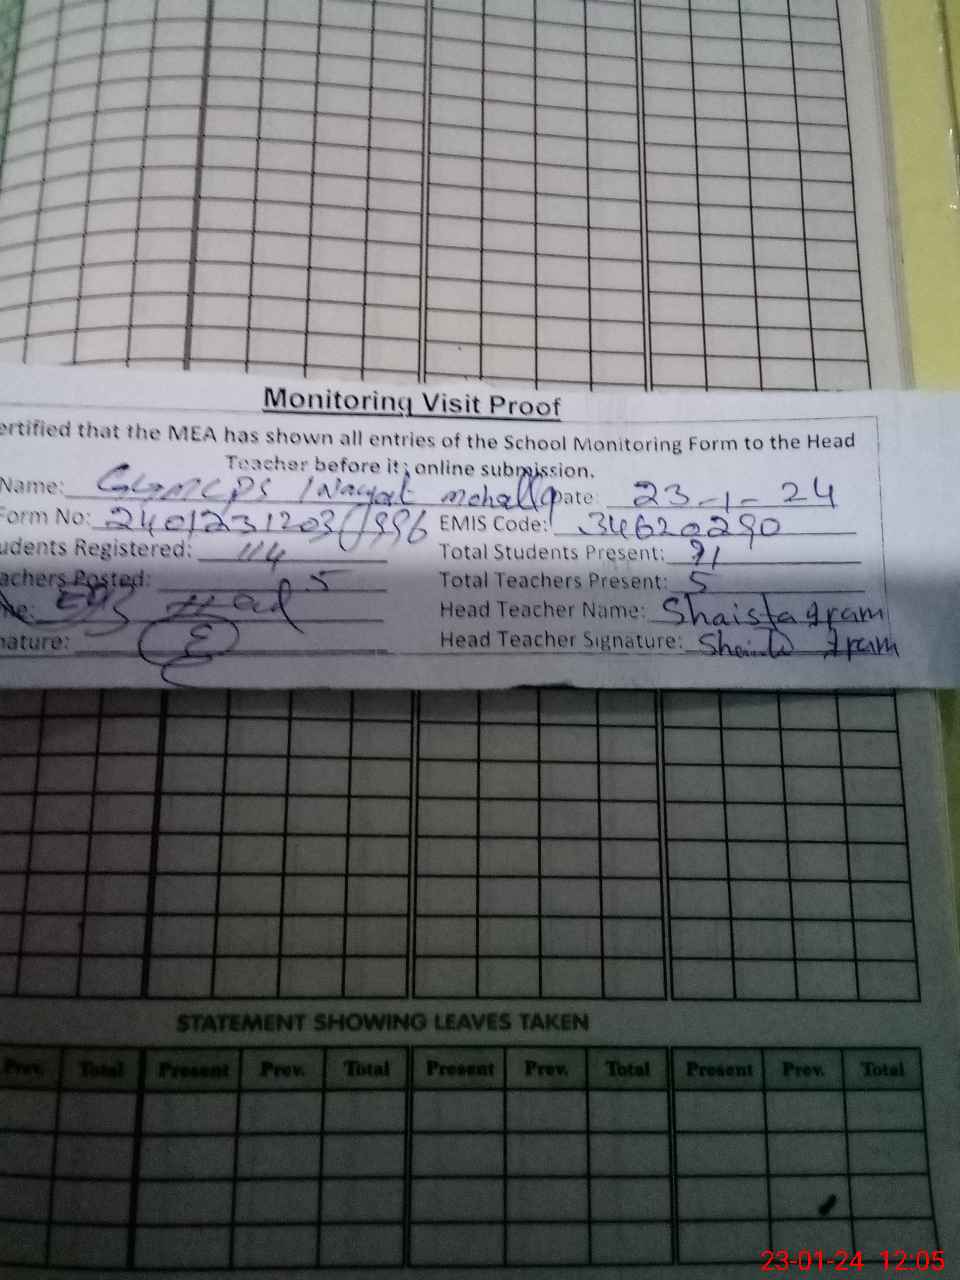 Monitoring Visit Proof
ertified that the MEA has shown all entries of the School Monitoring Form to the Head
Teacher before it; online submission.
Name: Inayat mohalla Date: 23-1-24
Form No: EMIS Code: 34620290
udents Registered: 114 Total Students Present: 91
achers Posted: 5 Total Teachers Present: 5
me: Head Teacher Name: Shaista
nature: Head Teacher Signature:
STATEMENT SHOWING LEAVES TAKEN
Prev. Total Present Prev. Total Present Prev. Total Present Prev. Total
23-01-24 12:05